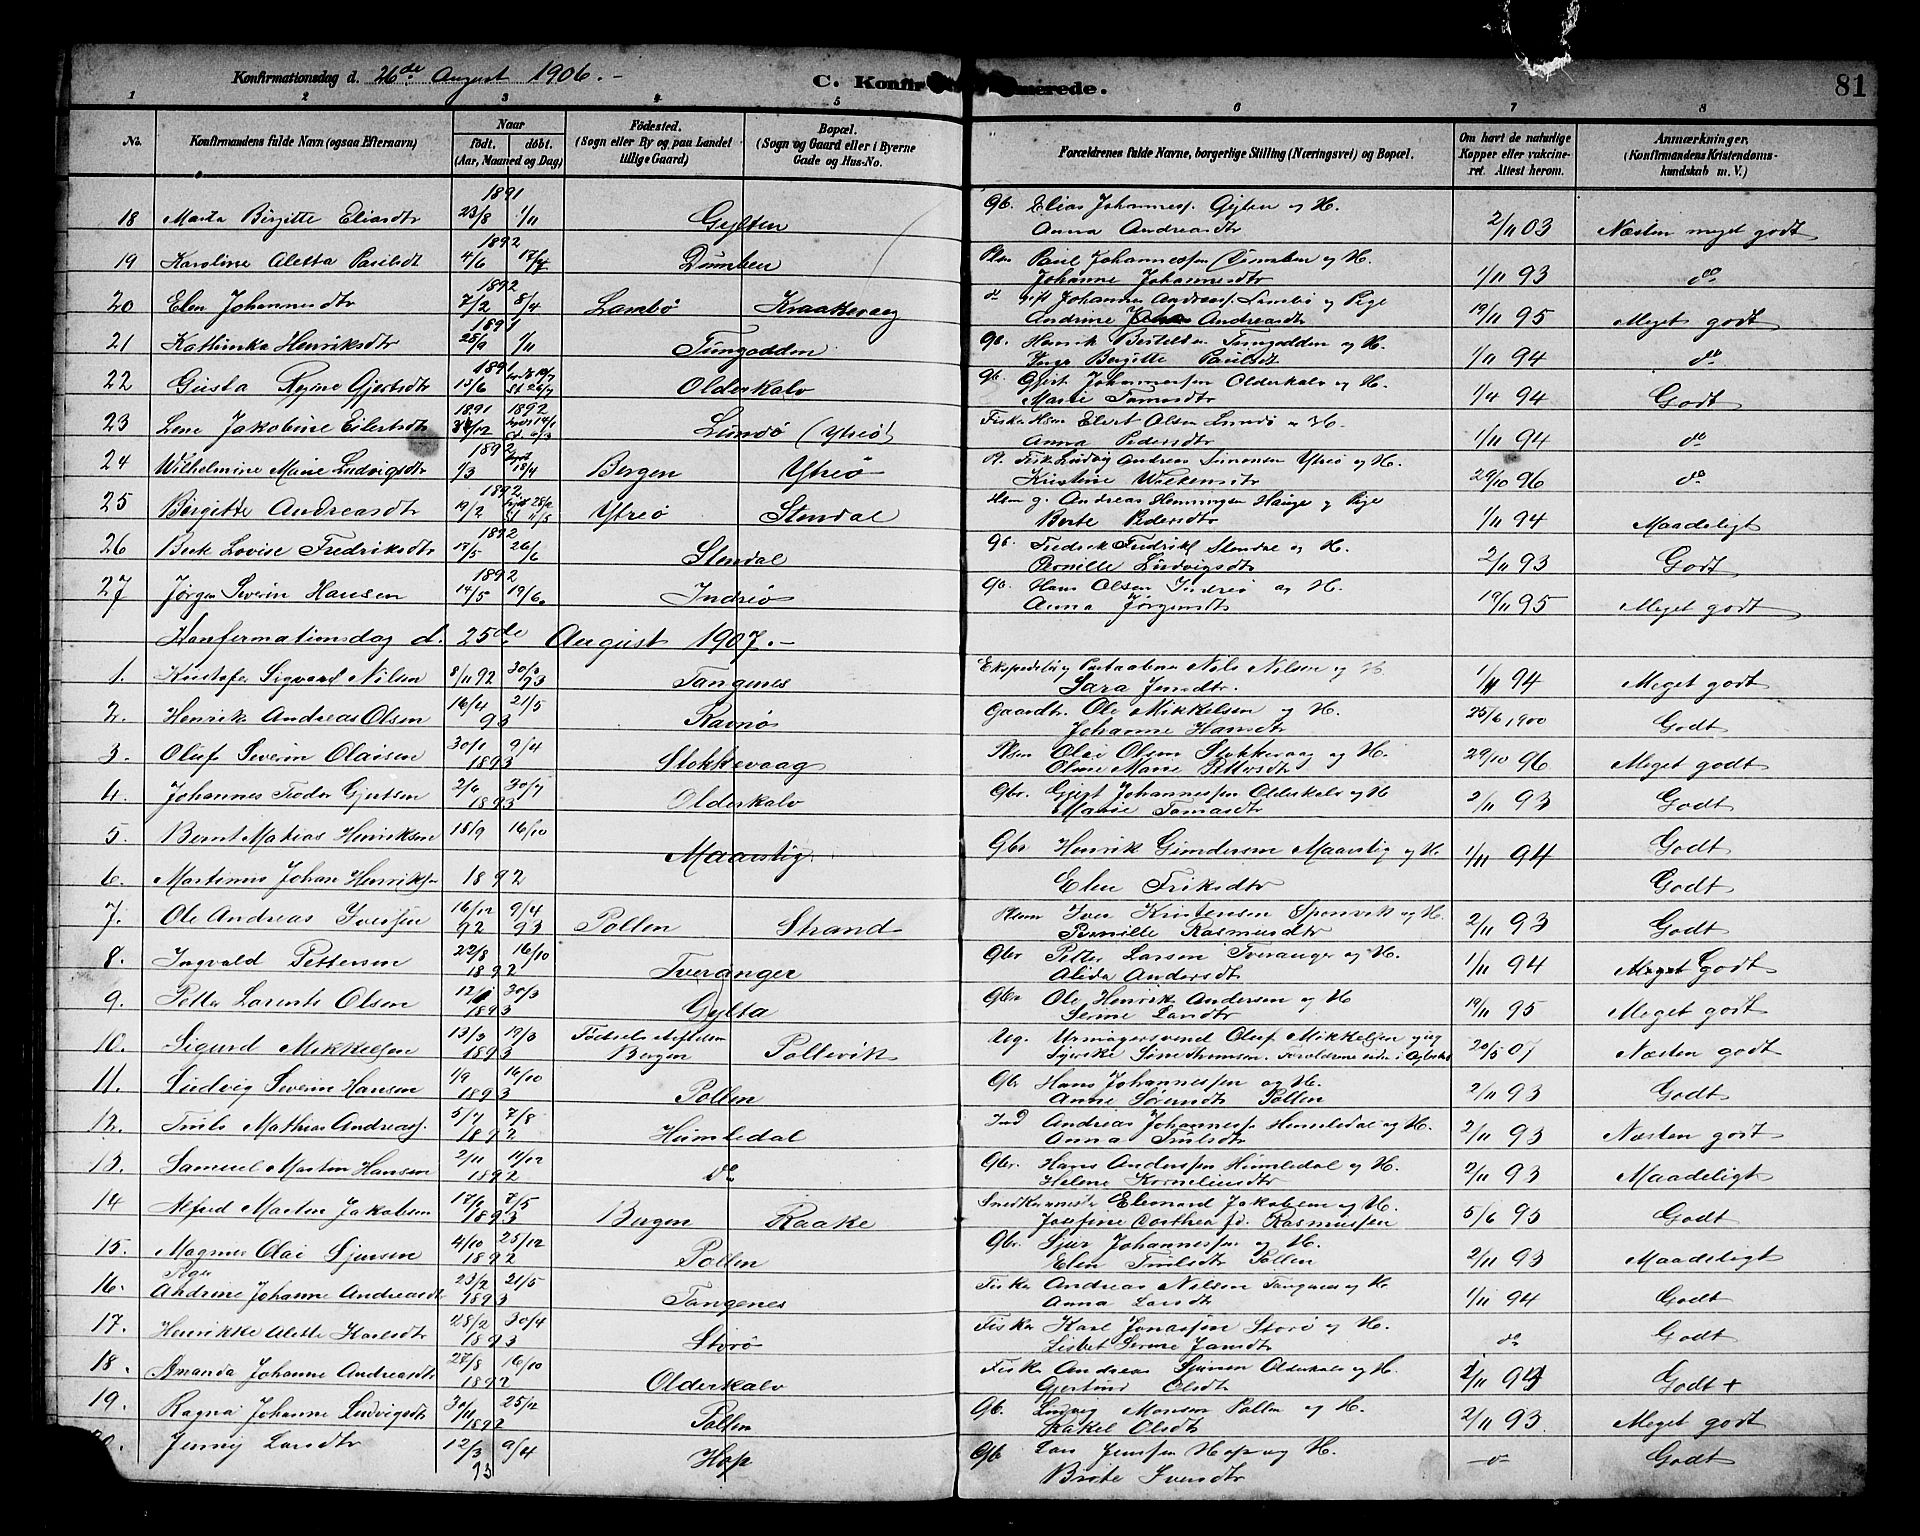 Konfirmationsdag d. 26de August 1906.-
C. Konfirmerede.
81
1 2 3 4 5 6 7 8
No.
Konfirmandens fulde Navn (ogsaa Efternavn)
Naar
født. døbt.
(Aar, Maaned og Dag)
Fødested.
(Sogn eller By og paa Landet tillige Gaard)
Bopæl.
(Sogn og Gaard eller i Byerne Gade og Hus-No.
Forældrenes fulde Navne, borgerlige Stilling (Næringsvei) og Bopæl.
Om havt de naturlige Kopper eller vakcineret. Attest herom.
Anmærkninger,
(Konfirmandens Kristendomskundskab m. V.)
18 Marta Birgitte Eliasdtr 1891 23/8 1/11 Gylten Gb. Elias Johanness. Gylten og H. Anna Andreasdtr 2/11 03 Næsten meget godt
19 Karoline Aletta Paulsdt 1892 4/6 17/7 Dumben Plsm Paul Johannessen Dumben og H. Johanne Johannesdtr 1/11 93 do
20 Elen Johannesdtr 1892 7/2 8/4 Lambø Kraakevaag do gift Johannes Andreass. Lambø og Pige Andrine Andreasdtr 19/11 95 Meget godt
21 Kathinka Henriksdtr 1891 28/9 1/11 Tungodden Gb. Henrik Tungodden og H. Inga Bergitte Paulsdt 1/11 94 do
22 Gusta Gjertsdtr 1891 13/6 Olderkalv Gb. Gjert Johannessen Olderkalv og H. Marie Tomasdtr 1/4 94 Godt
23 Lene Jakobine Eilertsdtr 1891 1892 Lundø (Ytreø) Fisker Elert Olsen Lundø o H. Anna Pedersdtr 1/11 94 do
24 Wilhelmine Marie Ludvigsdtr 1892 1/3 18/4 Bergen Ytreø Ludvig Andreas Simonsen Ytreø og H. Kristine 29/10 96 do
25 Birgitte Andreasdtr 1892 19/2 Ytreø Stendal Andreas Henningsen Hauge og Pige Berte Pedersdtr 1/11 94 Maadeligt
26 Berte Lovise Fredriksdtr 1892 17/5 26/6 Stendal Gb. Fredrik Fredriks Stendal og H. Pernille Ludvigsdtr 2/11 93 Godt
27 Jørgen Severin Hansen 1892 14/5 19/6. Indreø Gb. Hans Olsen Indreø og H. Anna Jørgensdtr 19/11 95 Meget godt
Konfermationsdag d. 25de August 1907.-
1. Kristofer Sigvard Nilsen 8/11 92 30/3 93 Tangenes Ekspeditør og Postaabner Nils Nilsen og H Sara Jensdtr. 1/11 94 Meget godt
2. Henrik Andreas Olsen 16/4 21/5 93 Ravnø Gaardbr. Ole Mikkelsen og H. Johanne Hansdtr 25/6 1900 Godt
3. Oluf Severin Olaisen 30/1 9/4 1893 Stokkevaag Plsm Olai Olsen Stokkevaag og H. Oline Marie Pettersdtr 29/10 96 Meget godt
4. Johannes Teodor Gjertsen 2/6 30/7 1893 Olderkalv Gbr. Gjert Johannessen Olderkalv og H Marie Tomasdtr 2/11 93 Godt
5. Bernt Matias Henriksen 18/9 16/10 Maarstig Gbr Henrik Gundersen Maarstig og H. 1/11 94 Godt
6. Martinus Johan Henriksen 1892 Elen Eriksdtr Godt
7. Ole Andreas Iversen 16/12 92 9/4 93 Pollen Strand Plsm Iver Kristensen Sponvik og H. Pernille Rasmusdtr 2/11 93 Godt
8. Ingvald Pettersen 22/8 16/10 1892 Tveranger Gbr Petter Larsen Tveranger og H. Alida Andersdtr 1/11 94 Meget Godt
9. Petter Lorents Olsen 12/1 30/3 1893 Gylta Gbr Ole Henrik Andersen og H Serine Larsdtr 19/11 95 Meget godt
10. Sigurd Mikkelsen 13/3 19/3 1893 Fødselsstiftelsen Bergen Pollevik Ug. Urmagersvend Oluf Mikkelsen og ug Syerske Sine Thomsen. 20/5 07 Næsten godt
11. Ludvig Severin Hansen 1/9 16/10 1893 Pollen Gbr Hans Johannessen og H. Anne Sørensdtr Pollen 2/11 93 Godt
12. Truls Mathias Andreass. 5/7 7/8 1892 Humledal Ind Andreas Johannessen Humledal og H. Anna Trulsdtr 2/11 93 Næsten godt
13. Samuel Martin Hansen 2/11 11/12 1892 do Gbr. Hans Anderssen Humledal og H. Helene Korneliusdtr 2/11 93 Maadeligt
14 Alfred Martin Jakobsen 17/1 7/5 1893 Bergen Raake Snedkermester Elenard Jakobsen og H. Josefine Dorthea fd. Rasmussen 5/6 95 Godt
15. Magnus Olai Sjursen 4/10 25/12 1892 Pollen Gbr. Sjur Johannessen og H. Elen Trulsdtr Pollen 2/11 93 Maadeligt
Piger
16. Andrine Johanne Andreasdtr 23/2 21/5 1893 Tangenes Fisker Andreas Nilsen Tangenes og H Anna Larsdtr 1/11 94 Godt
17. Henrikke Alette Karlsdtr 28/2 30/4 1893 Storø Fisker Karl Jonassen Storø og H. Lisbet Serine Jansdtr do Godt
18. Amanda Johanne Andreasdtr 27/8 16/10 1892 Olderkalv Fisker Andreas Sjursen Olderkalv og H. Gjertrud Olsdtr 1/11 94 Godt +
19. Ragna Johanne Ludvigsdtr 30/11 25/12 1892 Pollen Gb. Ludvig Monsen Pollen og H. Rakel Olsdtr 2/11 93 Meget godt
20. Jenny Larsdtr 12/3 9/4 93 Hop Gb Lars Jenssen Hop og H. Brite Iversdtr -o- Godt